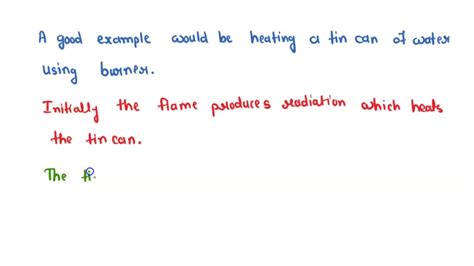 A good example would be heating a tin can of water
using burner.
Initially the flame produces radiation which heats
the tin can.
The